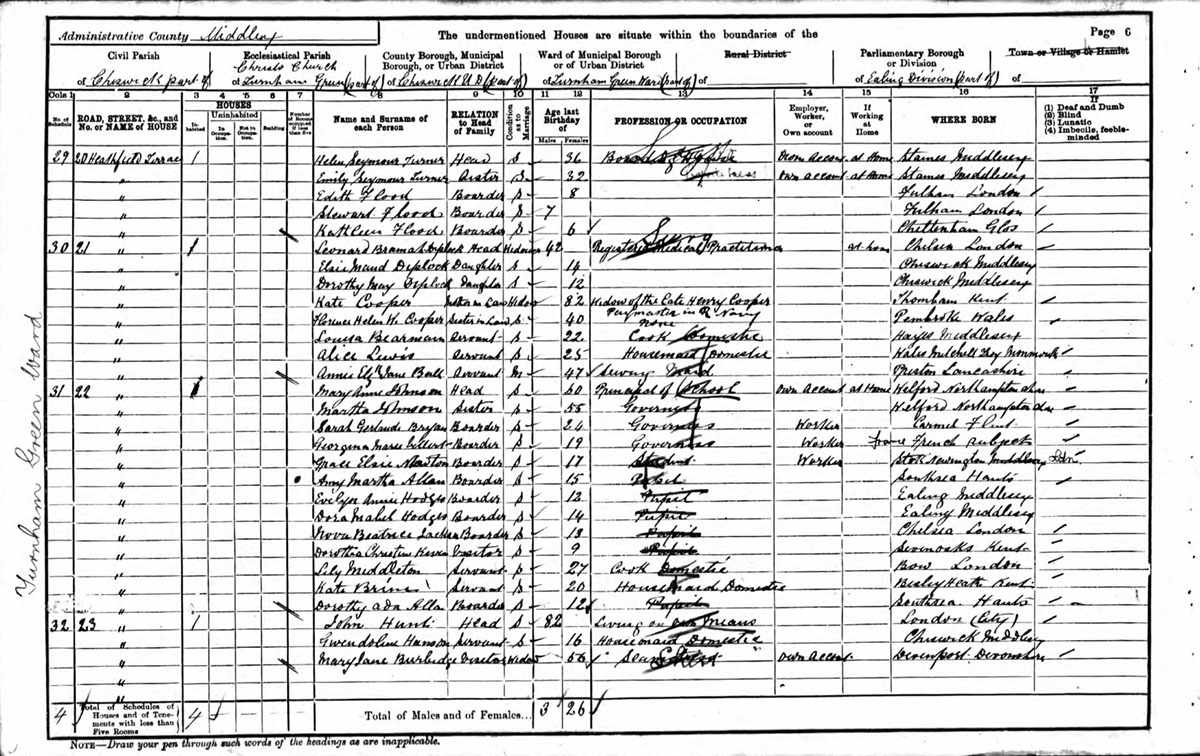 Administrative County Middlesex The undermentioned Houses are situate within the boundaries of the Page 6
Civil Parish Ecclesiastical Parish County Borough, Municipal Borough, or Urban District Ward of Municipal Borough or of Urban District Rural District Parliamentary Borough or Division Town or Village or Hamlet
of Chiswick part of of Christ Church Turnham Green (part of) of Chiswick U.D. (part of) of Turnham Green Ward (part of) of of Ealing Division (part of) of
Cols 1 2 3 4 5 6 7 8 9 10 11 12 13 14 15 16 17
No. of Schedule ROAD, STREET, &c., and No. or NAME of HOUSE HOUSES Inhabited Uninhabited In Occupation. Not in Occupation. Building Number of Rooms occupied if less than five Name and Surname of each Person RELATION to Head of Family Condition as to Marriage Age last Birthday of Males Females PROFESSION OR OCCUPATION Employer, Worker, or Own account If Working at Home WHERE BORN (1) Deaf and Dumb (2) Blind (3) Lunatic (4) Imbecile, feeble-minded
29 20 Heathfield Terrace 1 Helen Seymour Turner Head S 36 Own account at Home Staines Middlesex
" Emily Seymour Turner Sister S 32 Own account at Home Staines Middlesex
" Edith Flood Boarder S 8 Fulham London
" Stewart Flood Boarder S 7 Fulham London
" Kathleen Flood Boarder S 6 Cheltenham Glos
30 21 " 1 Leonard Bramah Diplock Head Widower 42 Registered Medical Practitioner at home Chelsea London
" Elsie Maud Diplock Daughter S 14 Chiswick Middlesex
" Dorothy May Diplock Daughter S 12 Chiswick Middlesex
" Kate Cooper Mother in Law Widow 82 Widow of the late Henry Cooper Paymaster in R Navy Thornham Kent
" Florence Helen K. Cooper Sister in Law S 40 None Pembroke Wales
" Louisa Bearmain Servant S 22 Cook Domestic Hayes Middlesex
" Alice Lewis Servant S 25 Housemaid Domestic Monmouth
" Annie Eliz Jane Bull Servant M 47 Sewing Maid Preston Lancashire
31 22 " 1 Mary Anne Johnson Head S 60 Principal of School Own account at Home Welford Northamptonshire
" Martha Johnson Sister S 55 Governess Welford Northamptonshire
" Sarah Gertrude Bryan Boarder S 24 Governess Worker Flint
" Georgina Marie Boarder S 19 Governess Worker France French Subject
" Grace Elsie Newton Boarder S 17 Student Worker Stoke Newington Middlesex Lon
" Amy Martha Allan Boarder S 15 Pupil Southsea Hants
" Evelyn Annie Hodges Boarder S 12 Pupil Ealing Middlesex
" Dora Mabel Hodges Boarder S 14 Pupil Ealing Middlesex
" Nova Beatrice Boarder S 13 Pupil Chelsea London
" Dorothea Christine Visitor S 9 Pupil Sevenoaks Kent
" Lily Middleton Servant S 27 Cook Domestic Bow London
" Kate Servant S 20 Housemaid Domestic Bexley Heath Kent
" Dorothy Ada Allan Boarder S 12 Pupil Southsea Hants
32 23 " 1 John Hunt Head S 82 Living on own Means London (City)
" Gwendoline Servant S 16 Housemaid Domestic Chiswick Middlesex
" Mary Jane Burbidge Visitor Widow 56 Own account Devonport Devonshire
"
"
4 Total of Schedules of Houses and of Tenements with less than Five Rooms 4 Total of Males and of Females... 3 26
NOTE—Draw your pen through such words of the headings as are inapplicable.
Turnham Green Ward